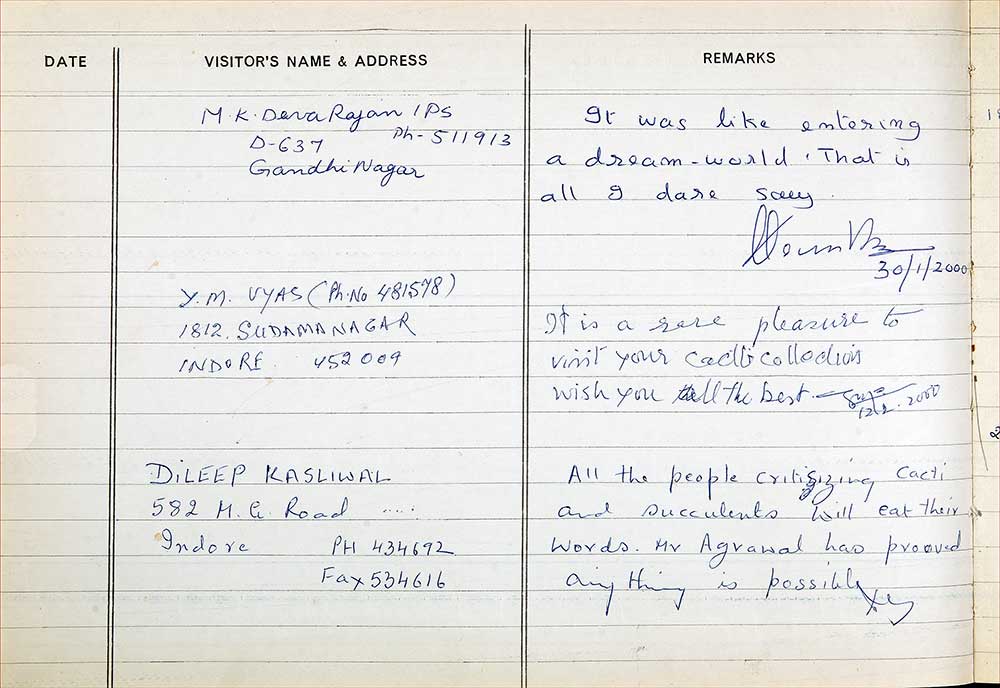 DATE
VISITOR'S NAME & ADDRESS
REMARKS
M.K. Deva Rajan IPS
D-637 Ph- 511913
Gandhi Nagar
It was like entering
a dream-world. That is
all I dare say.
30/1/2000
Y.M. VYAS (Ph.No 481578)
1812, SUDAMANAGAR
INDORE 452009
It is a rare pleasure to
visit your cacti collections
wish you all the best
12.2.2000
DILEEP KASLIWAL
582 M.G. Road ....
Indore PH 434692
Fax 534616
All the people critisizing cacti
and succulents will eat their
words. Mr Agrawal has prooved
anything is possible